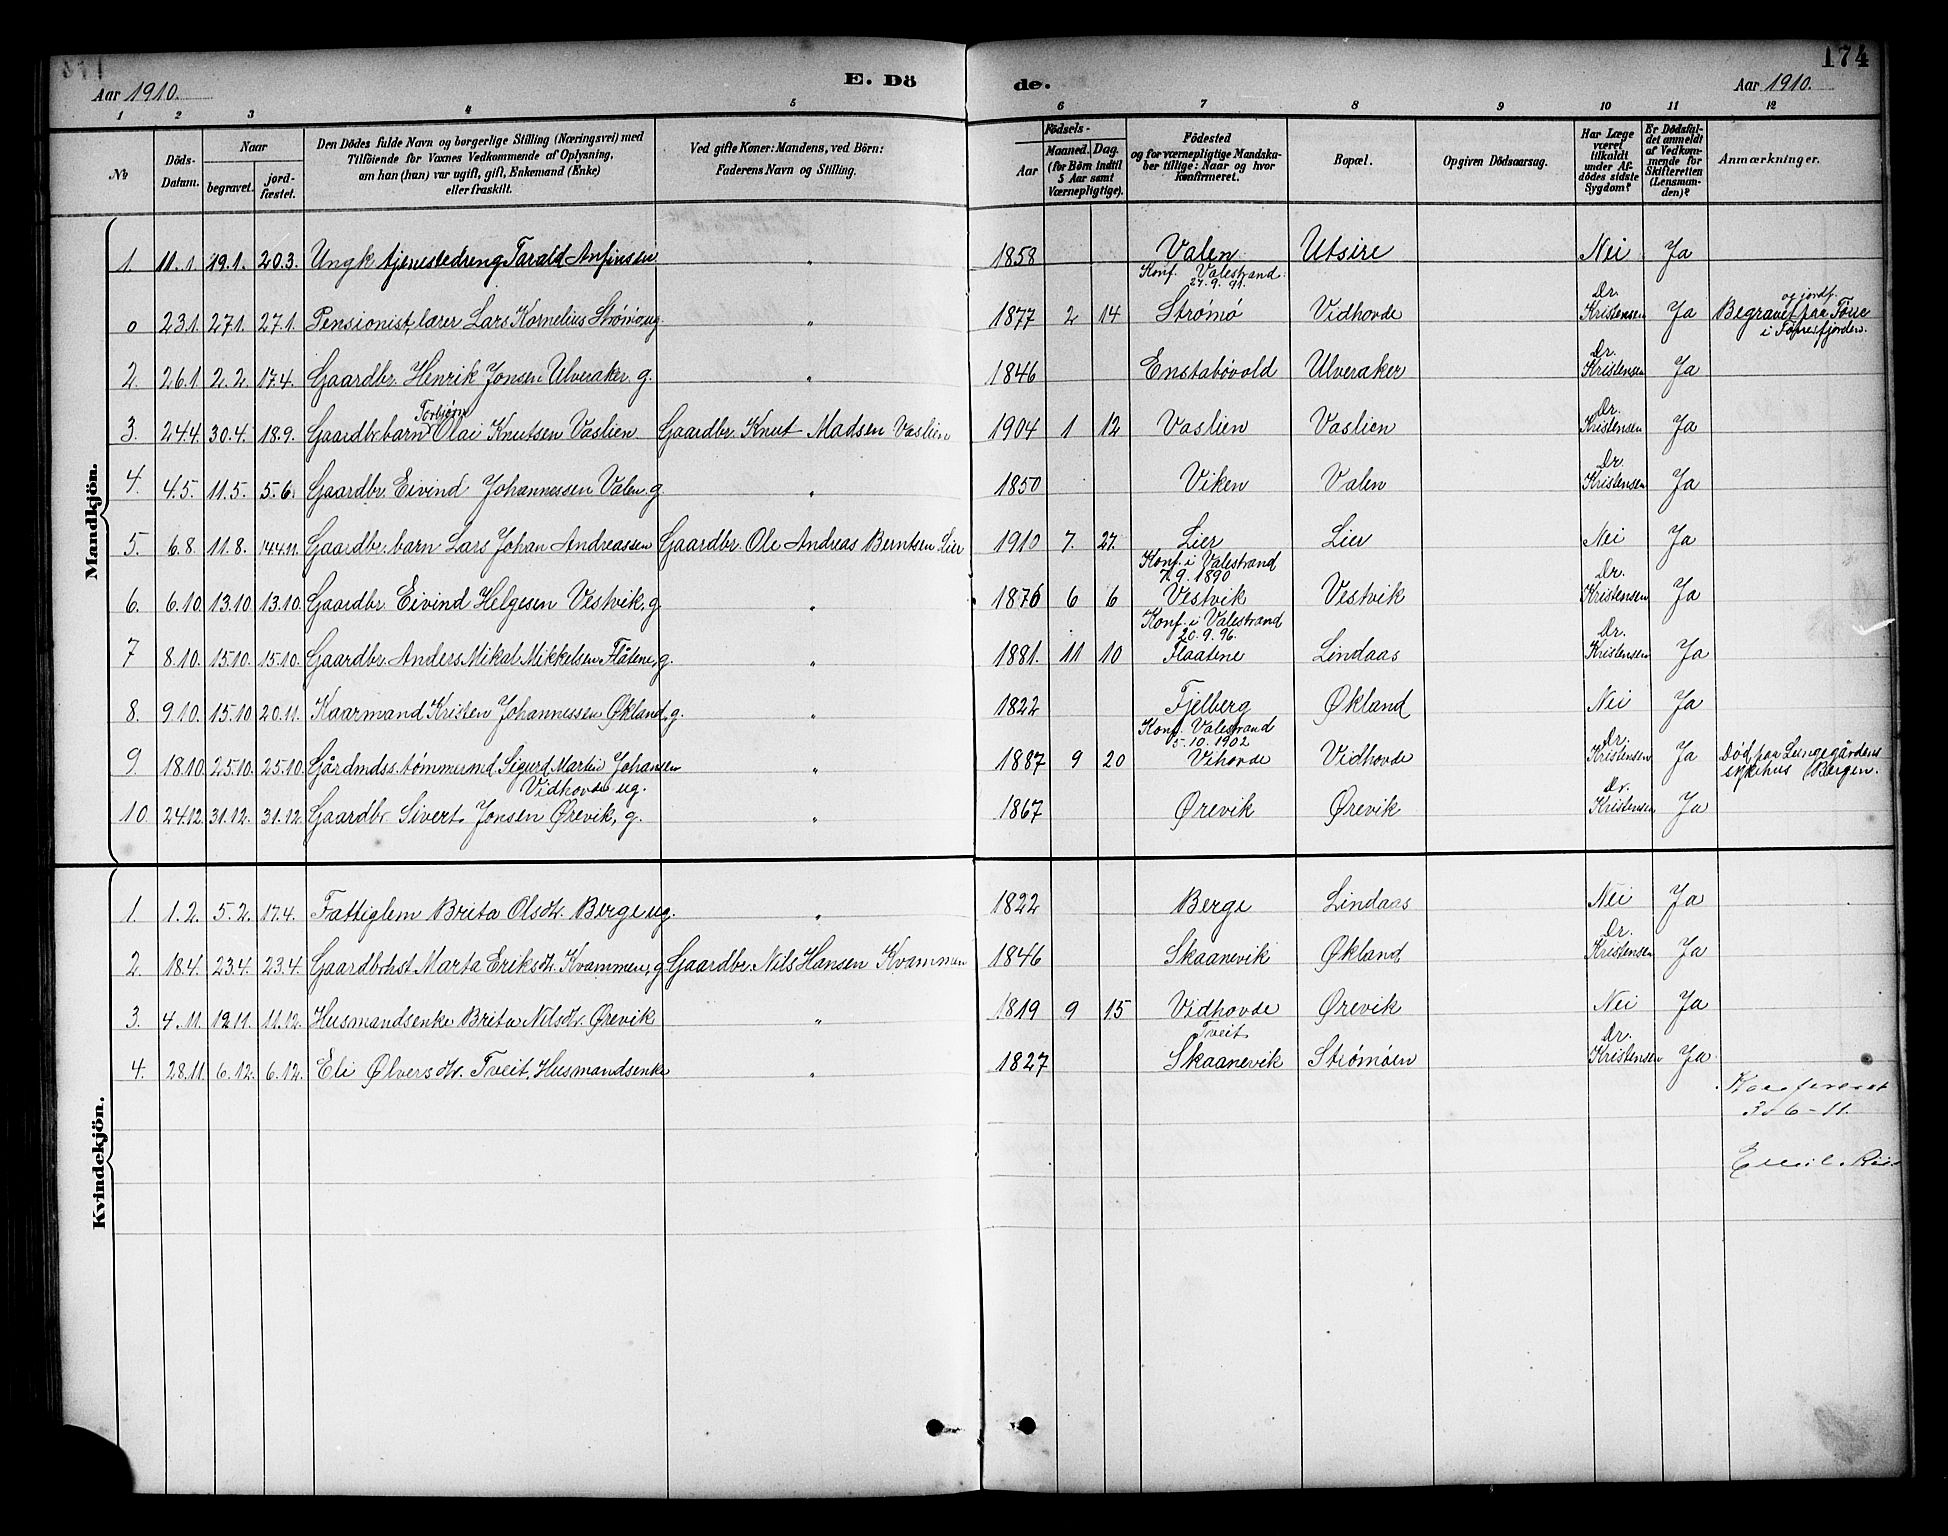 174
Aar 1910.
E. Dö
de.
Aar 1910.
1 2 3 4 5 6 7 8 9 10 11 12
No
Döds-Datum.
Naar
begravet.
jord-fæstet.
Den Dödes fulde Navn og borgerlige Stilling (Næringsvei) med
Tilföiende for Voxnes Vedkommende af Oplysning,
om han (hun) var ugift, gift, Enkemand (Enke)
eller fraskilt.
Ved gifte Koner: Mandens, ved Börn:
Faderens Navn og Stilling.
Födsels-
Aar
Maaned. Dag.
(for Börn indtil
5 Aar samt
Værnepligtige).
Födested
og for værnepligtige Mandska-
ber tillige: Naar og hvor
konfirmeret.
Bopæl.
Opgiven Dödsaarsag.
Har Læge
været
tilkaldt
under Af-
dödes sidste
Sygdom?
Er Dödsfal-
det anmeldt
af Vedkom-
mende for
Skifteretten
(Lensman-
den)?
Anmærkninger.
Mandkjön.
1. 11.1 19.1. 20.3. Ungk tjenestedreng Tarald Anfinsen " 1858 Valen Utsire Nei Ja
Konf. Valestrand
27.9.91.
Dr. og jordf.
o 23.1 27.1. 27.1. Pensionist, lærer Lars Kornelius Strømø ug. " 1877 2 14 Strømø Vidhovde Kristensen Ja Begravet paa
i
Dr.
2. 26.1 2.2. 17.4. Gaardbr. Henrik Jonsen Ulveraker g. " 1846 Enstabøvold Ulveraker Kristensen Ja
Torbjørn Dr.
3. 24.4. 30.4. 18.9. Gaardbr. barn Olai Knutsen Vaslien Gaardbr. Knut Madsen Vaslien 1904 1 12 Vaslien Vaslien Kristensen Ja
Dr.
4. 4.5. 11.5. 5.6. Gaardbr. Eivind Johannessen Valen, g. " 1850 Viken Valen Kristensen Ja
5. 6.8. 11.8. Gaardbr. barn Lars Johan Andreassen Gaardbr. Ole Andreas Berntsen Lier 1910 7. 27. Lier Lier Nei Ja
Konf. i Valestrand
1890 Dr.
6. 6.10. 13.10. 13.10. Gaardbr. Eivind Helgesen Vestvik, g. " 1876 6 6 Vestvik Vestvik Kristensen Ja
Konf. i Valestrand
20.9.96. Dr.
7 8.10. 15.10. 15.10. Gaardbr. Anders Mikal Mikkelsen Flåtene, g. " 1881. 11 10 Flaatene Lindaas Kristensen Ja
8. 9.10. 15.10 20.11. Kaarmand Kristen Johannessen Økland, g. " 1822 Fjelberg Økland Nei Ja
Konf. Valestrand
5.10.1902 Dr.
9. 18.10 25.10. 25.10. Gårdmdss. tømmermd. Sigurd Martin Johansen " 1887 9 20 Vihovde Vidhovde Kristensen Ja Død paa Lungegårdens
Vidhovde ug. sykehus (Bergen.
Dr.
10. 24.12. 31.12. 31.12. Gaardbr. Sivert Jonsen Ørevik, g. " 1867 Ørevik Ørevik Kristensen Ja
Kvindekjön.
1. 1.2. 5.2. 17.4. Fattiglem Brita Olsdtr. Berge ug. " 1822 Berge Lindaas Nei Ja
Dr.
2. 18.4. 23.4. 23.4. Marta Eriksdtr. Kvammen, g. Gaardbr. Nils Hansen Kvammen 1846 Skaanevik Økland Kristensen Ja
3. 4.11. 12.11. 11.12. Husmandsenke Brita Nilsdtr. Ørevik " 1819 9 15 Vidhovde Ørevik Nei Ja
Tveit Dr.
4. 28.11. 6.12. 6.12. Eli Ølversdtr. Tveit, Husmandsenke " 1827 Skaanevik Strømøen Kristensen Ja
Konfereret
6-11.